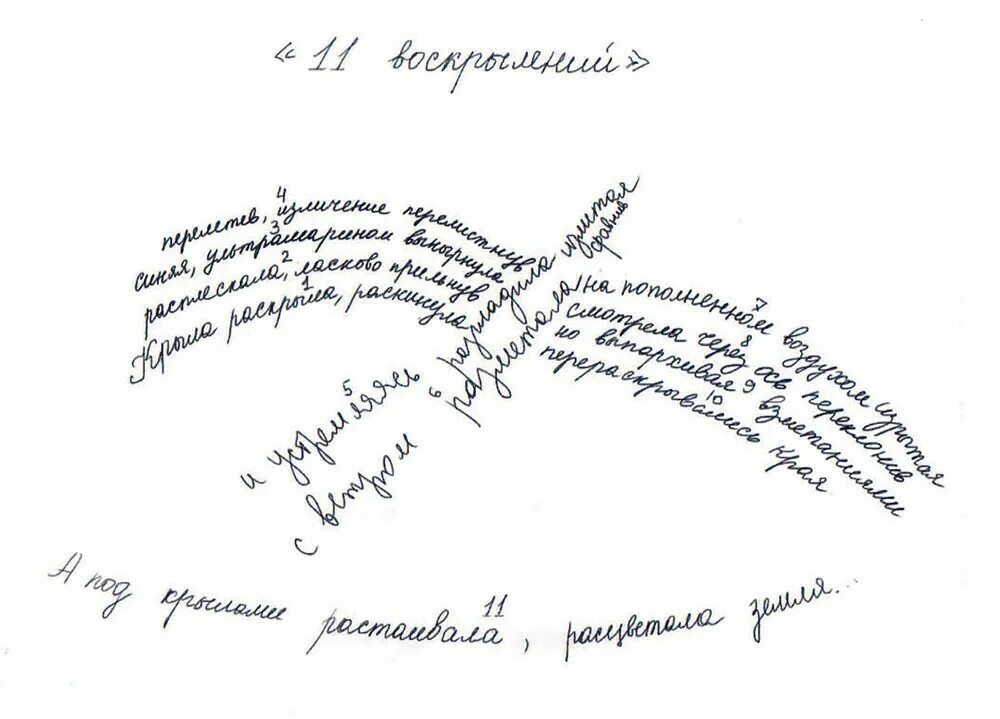 « 11 воскрылений »
4
перелетев, излучение перелистнув
3
синяя, ультрамарином вынырнула
2
расплескала, ласково прильнув
1
Крыла раскрыла, раскинула
5
и устремляясь разгладила излитая
6
с ветром разметала вдавлив
7
на пополненном воздухом изрытая
8
смотрела через ось переклонив
9
но выпархивая взметаниями
10
перераскрывались края
11
А под крылами растаивала, расцветала земля...